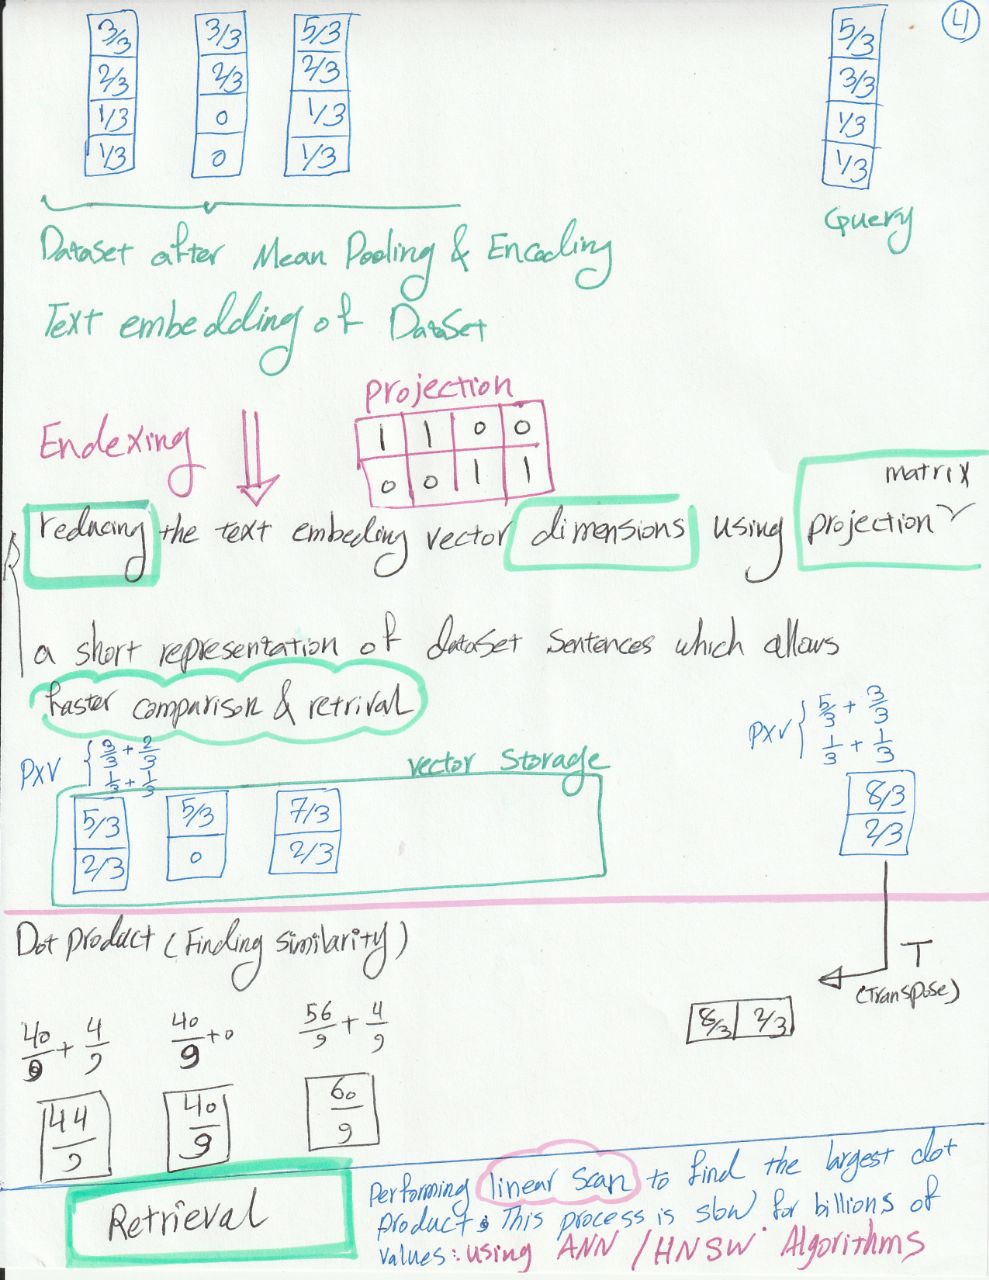 4
3/3 3/3 5/3 5/3
2/3 2/3 2/3 3/3
1/3 0 1/3 1/3
1/3 0 1/3 1/3
Query
Dataset after Mean Pooling & Encoding
Text embedding of DataSet
projection
1 1 0 0
0 0 1 1
Endexing
matrix
reducing the text embeding vector dimensions using projection
a short representation of dataset sentences which allows
faster comparison & retrival
PXV { 3/3 + 2/3
1/3 + 1/3
PXV { 5/3 + 3/3
1/3 + 1/3
vector Storage
5/3 5/3 7/3 8/3
2/3 0 2/3 2/3
Dot product (Finding Similarity)
T
(Transpose)
8/3 2/3
40/9 + 4/9 40/9 + 0 56/9 + 4/9
44/9 40/9 60/9
Retrieval
Performing linear scan to find the largest dot
product. This process is slow for billions of
values: using ANN / HNSW Algorithms